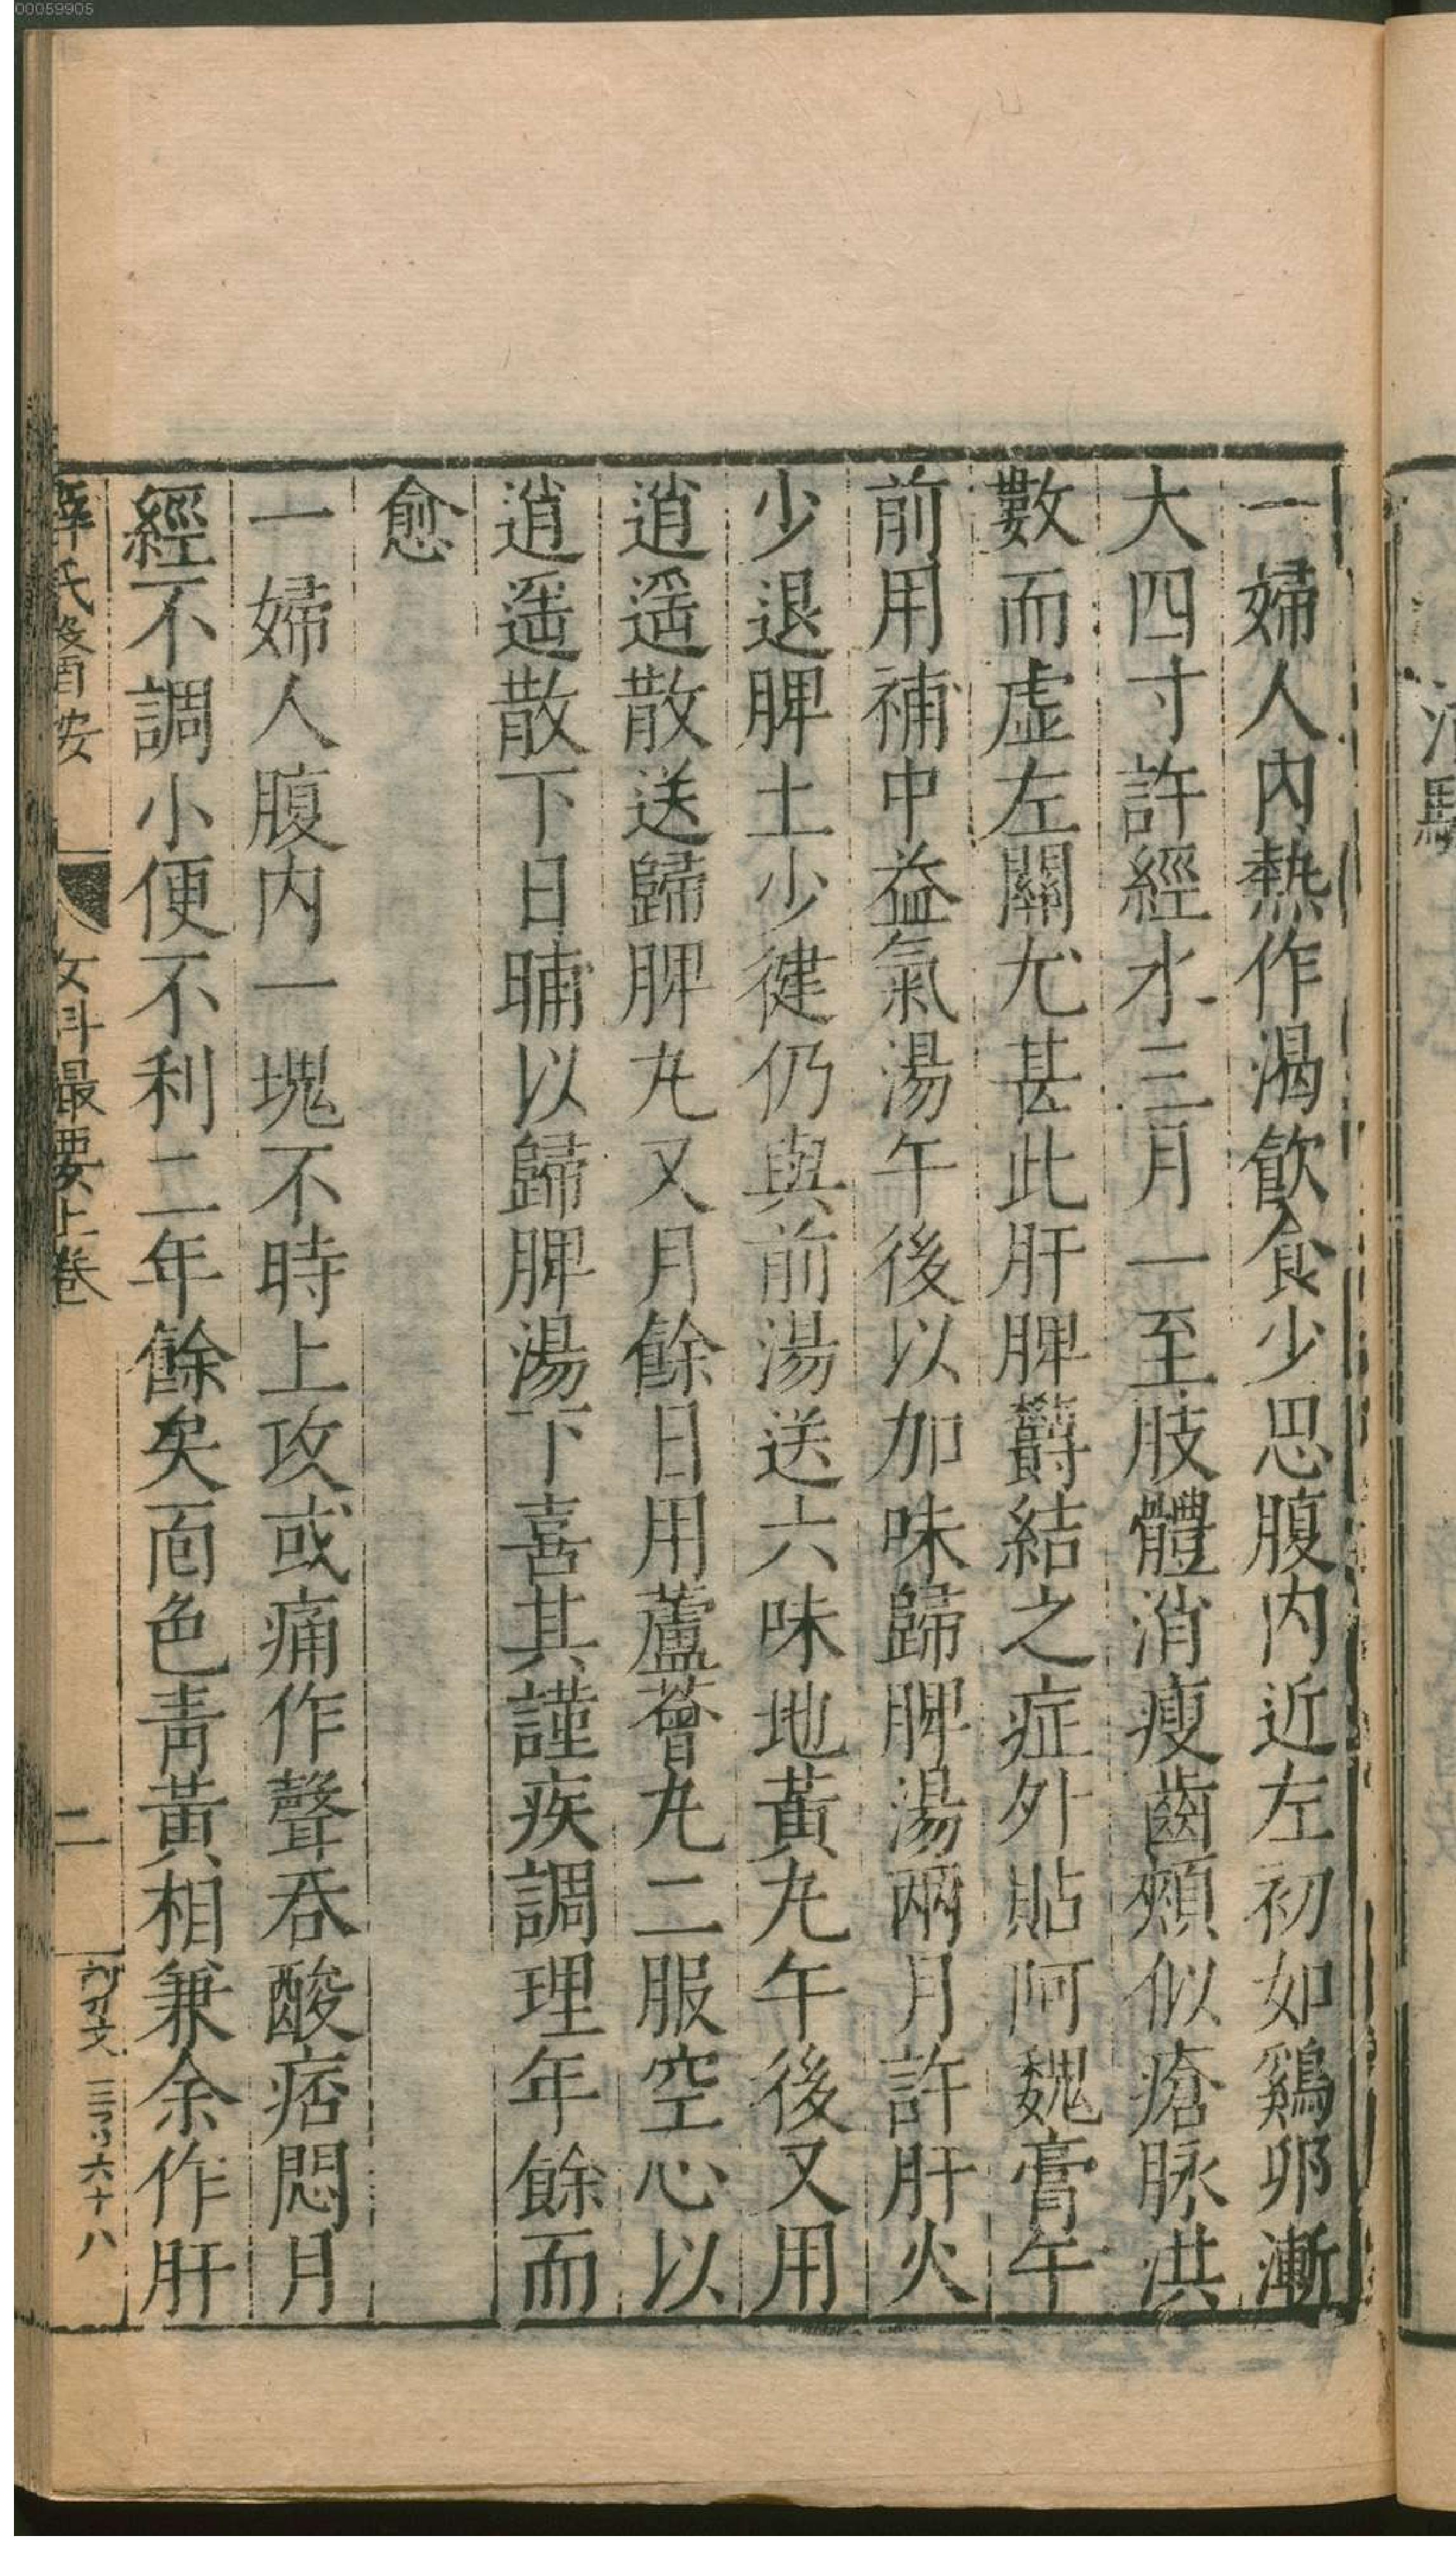 一婦人內熱作渴飲食少思腹內近左初如鷄卵漸
大四寸許經水三月一至肢體消瘦齒頰似瘡脉洪
數而虛左關尤甚此肝脾欝結之症外貼阿魏膏午
前用補中益氣湯午後以加味歸脾湯兩月許肝火
少退脾土少徤仍與前湯送六味地黃丸午後又用
逍遥散送歸脾丸又月餘日用蘆薈丸二服空心以
逍遥散下日晡以歸脾湯下喜其謹疾調理年餘而
愈
一婦人腹內一塊不時上攻或痛作聲吞酸痞悶月
經不調小便不利二年餘矣面色青黃相兼余作肝
薛氏醫按
女科撮要上卷
二
00059905